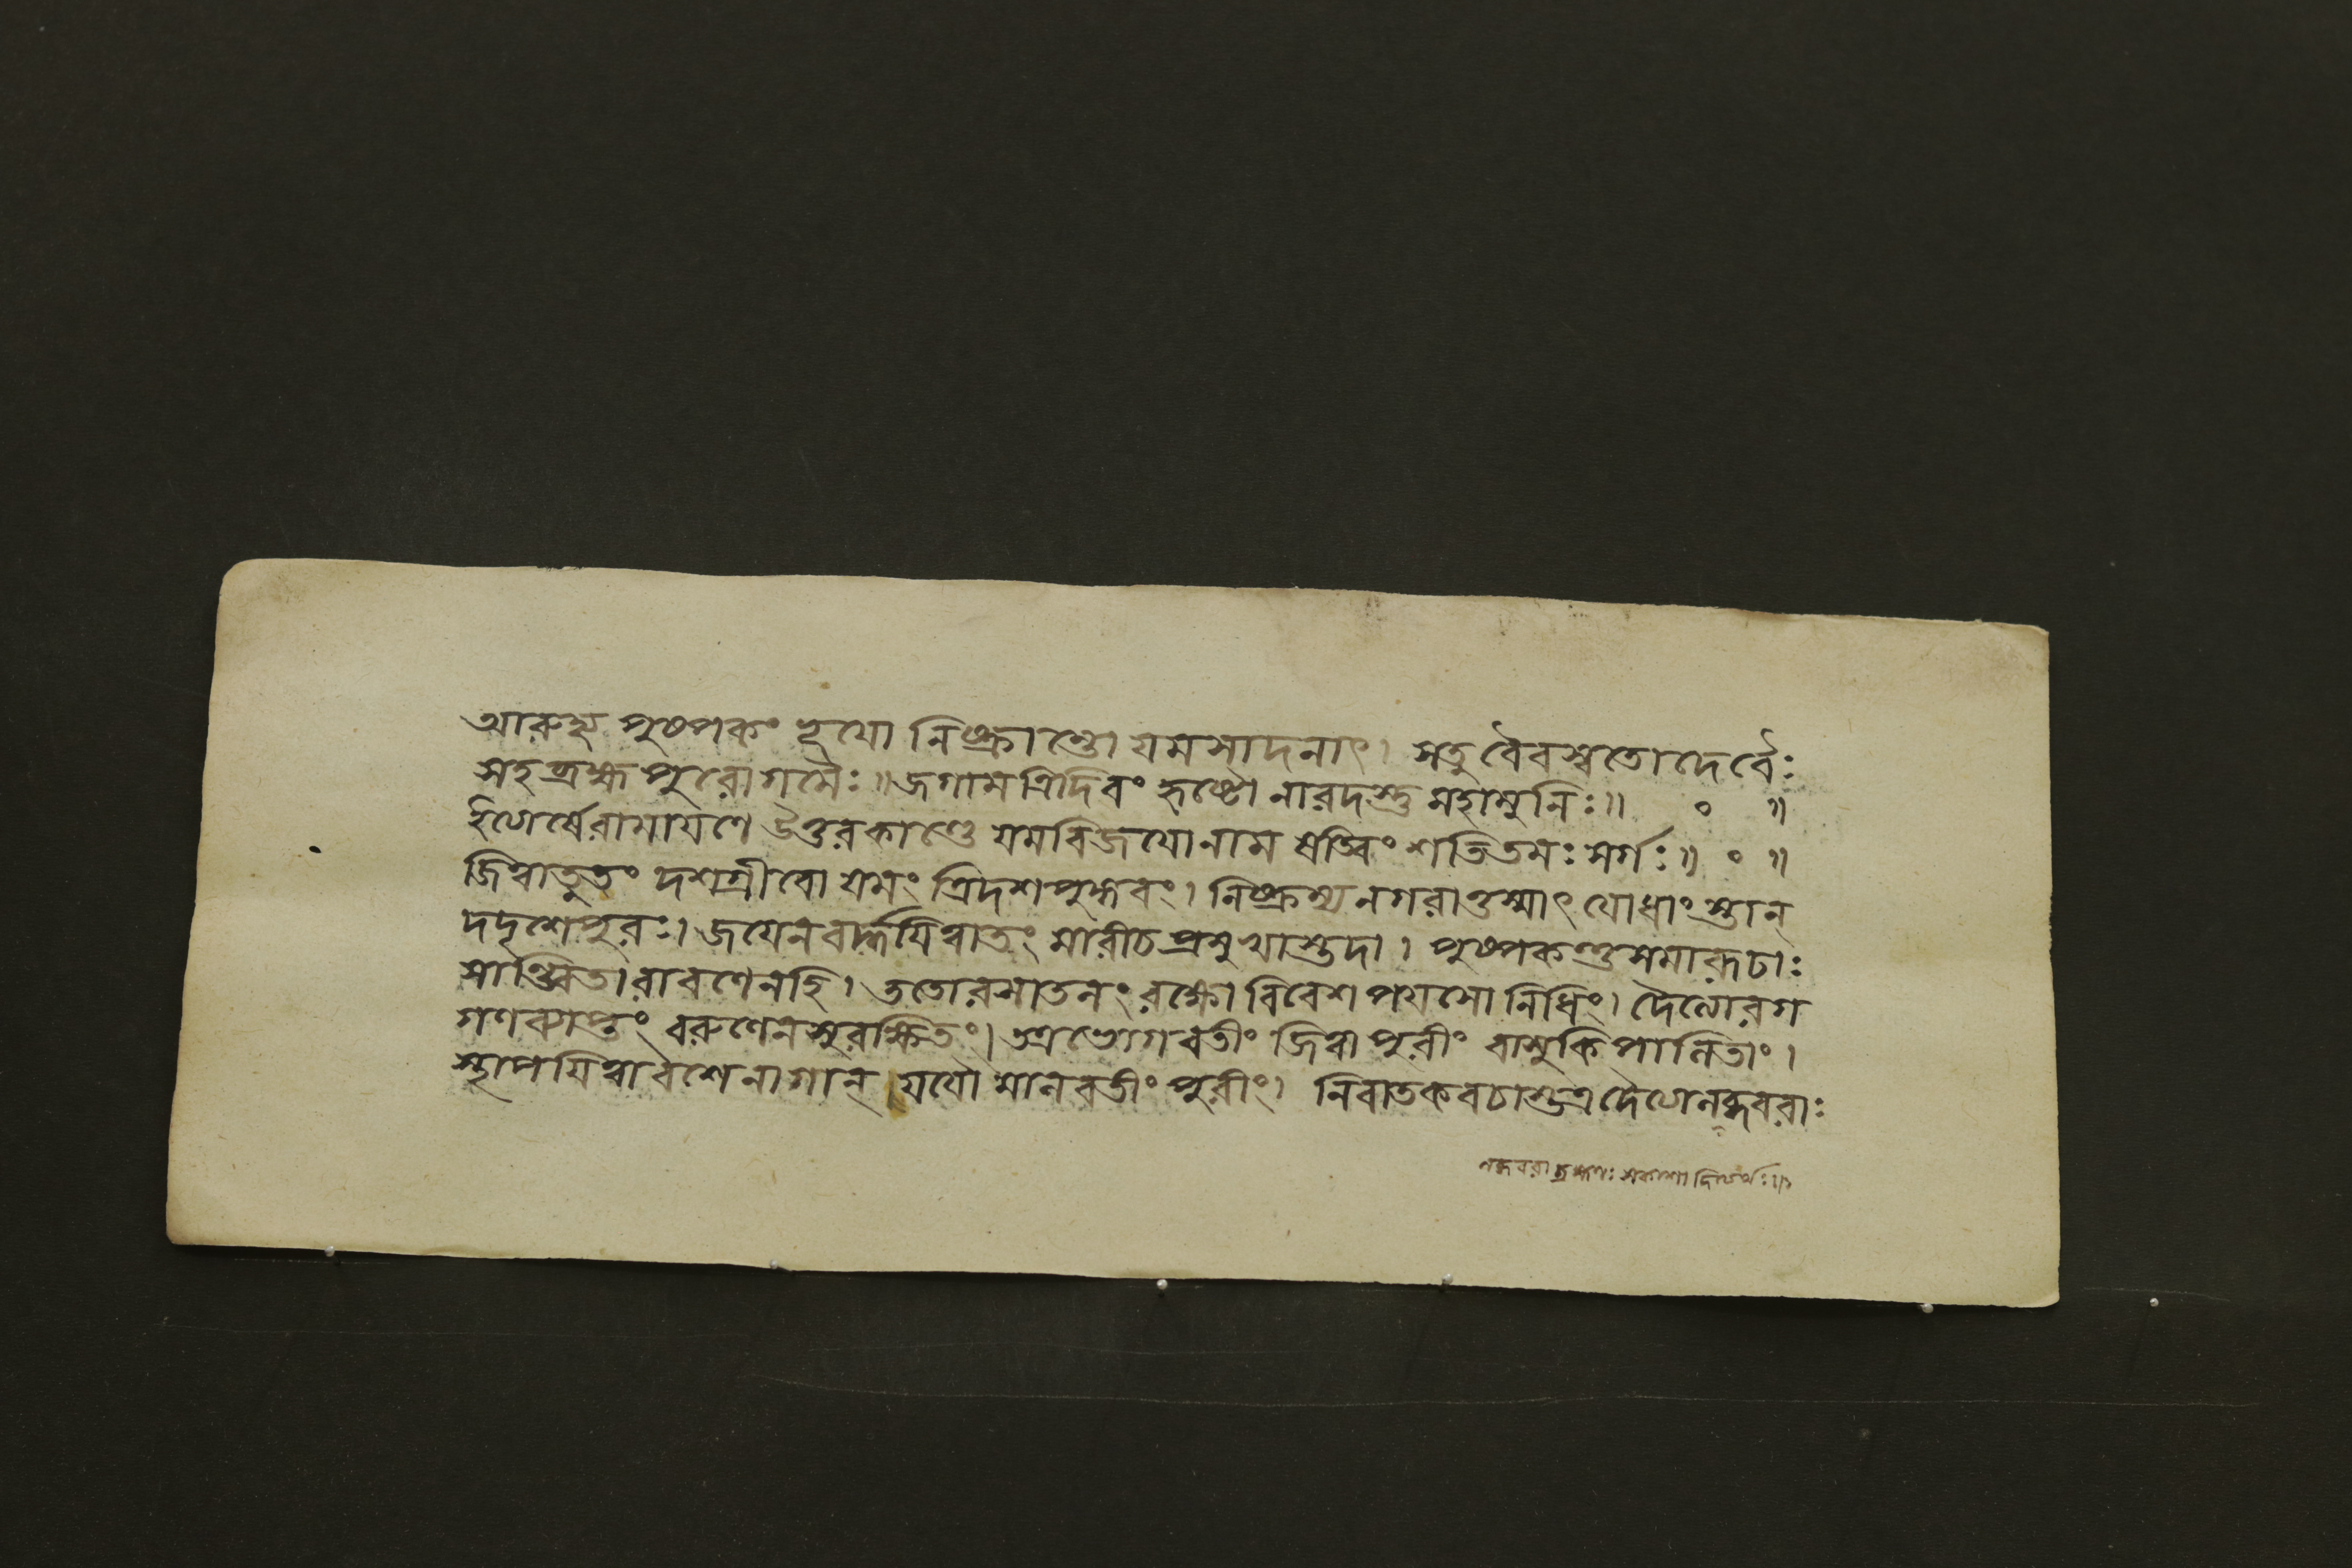 আরুহ্য পুষ্পকং হৃষ্টো নিষ্ক্রান্তো যমসাদনাৎ। সতু বৈবস্বতো দেবৈঃ
সহ ব্রহ্ম পুরোগমৈঃ॥ জগাম ত্রিদিবং হৃষ্টো নারদস্তু মহামুনিঃ॥ ॰ ॥
ইত্যার্ষেরামায়ণে উত্তরকাণ্ডে যমবিজয়োনাম ষড়্বিংশতিতমঃ সর্গঃ॥ ॰ ॥
জিত্বাতুতং দশগ্রীবো যমং ত্রিদশপুঙ্গবং। নিষ্ক্রম্য নগরাত্তস্মাৎ যোধাংস্তান্
দদৃশে পুরঃ। জয়েনবর্দ্ধয়িত্বাতং মারীচপ্রমুখাস্তদা। পুষ্পকস্তু সমারূঢাঃ
সান্ত্বিতা রাবণেনহি। ততোরসাতলং রক্ষো বিবেশ পয়সো নিধিং। দৈত্যোরগ
গণব্যাপ্তং বরুণেনসুরক্ষিতং। তত্র ভোগবতীং জিত্বা পুরীং বাসুকিপালিতাং।
স্থাপয়িত্বাবশেনাগান্ যযৌ মানবতীং পুরীং। নিবাতকবচাস্তত্রদৈত্যেলব্ধবরাঃ
লব্ধবরা ব্রহ্মণঃ সকাশা দিত্যর্থঃ॥